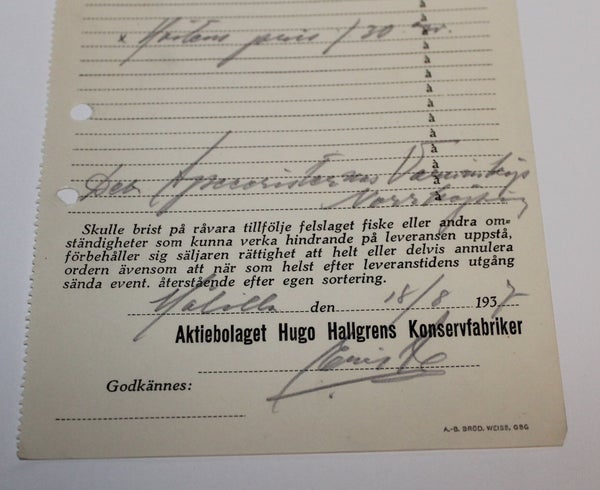 à
x Höstens pris /30
à
à
à
à
à
à
à
à
à
Det
Norrköping
Skulle brist på råvara tillfölje felslaget fiske eller andra om=
ständigheter som kunna verka hindrande på leveransen uppstå,
förbehåller sig säljaren rättighet att helt eller delvis annulera
ordern ävensom att när som helst efter leveranstidens utgång
sända event. återstående efter egen sortering.
den 18/8 1937
Aktiebolaget Hugo Hallgrens Konservfabriker
Godkännes:
A.-B. BRÖD. WEISS, GBG